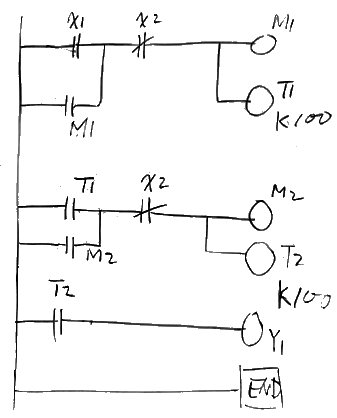 X1 X2 M1
T1
K100
M1
T1 X2 M2
M2 T2
K100
T2
Y1
END